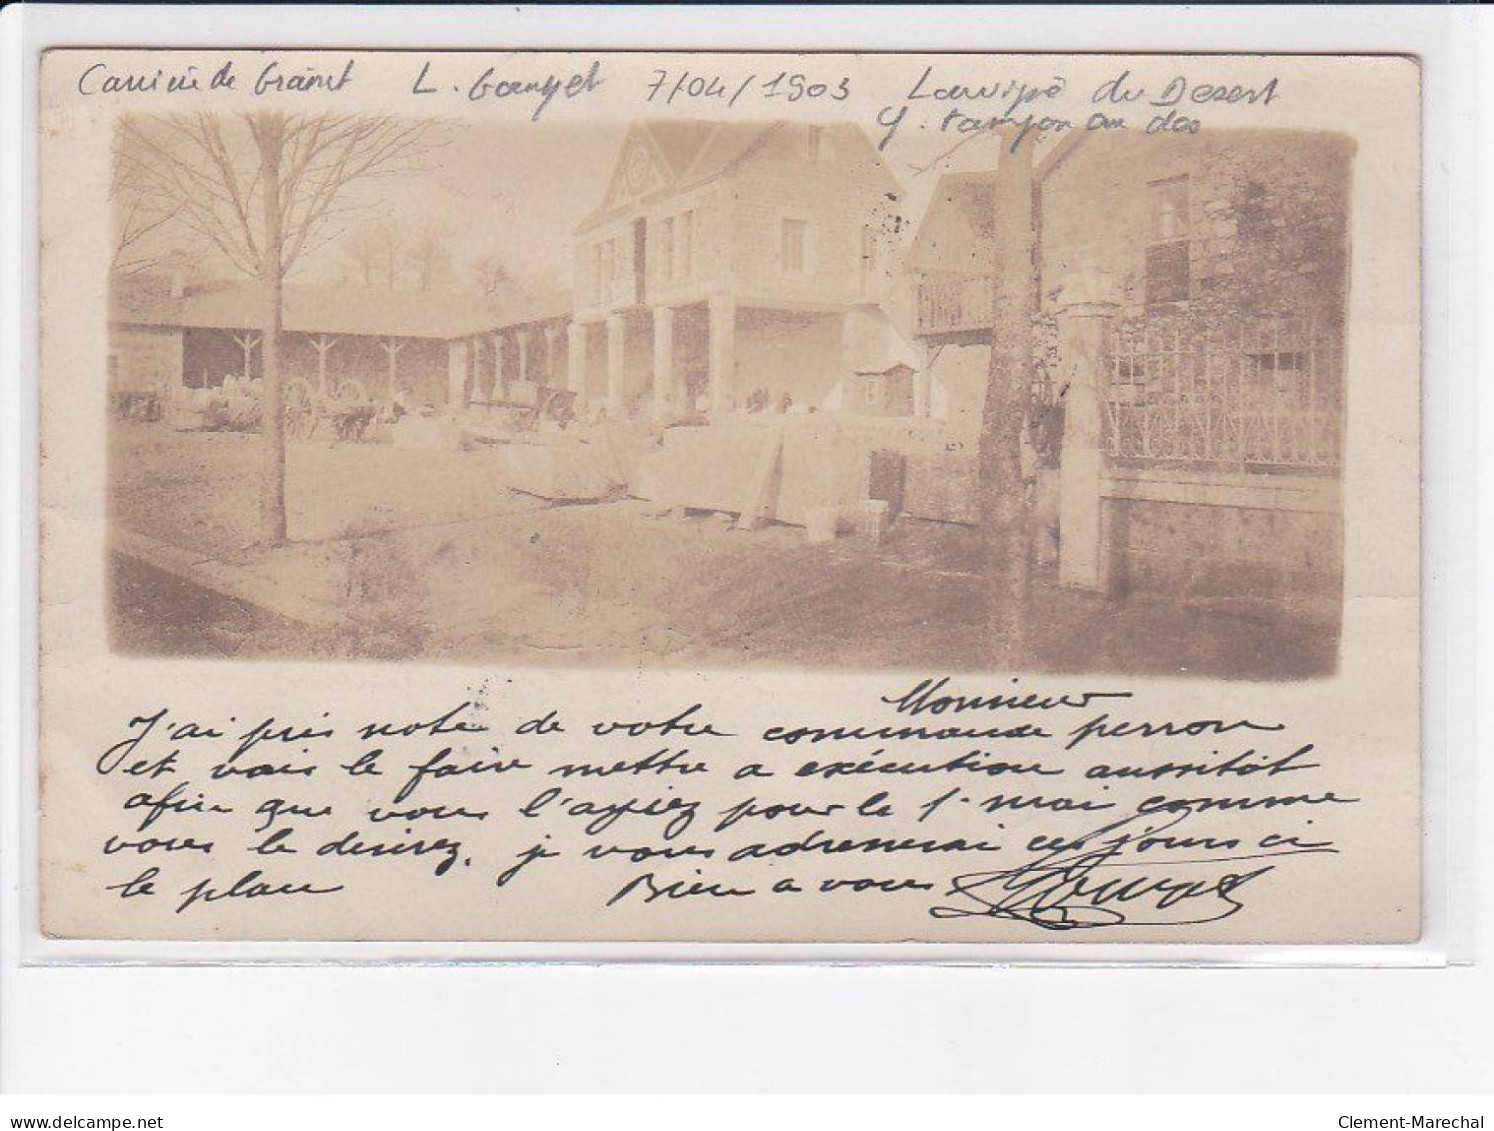 Carrière de Granit L. Gougel 7/04/1903 Louvigné du Desert
cf. tampon au dos
Monsieur
J'ai pris note de votre commande perron
et vais le faire mettre a exécution aussitôt
afin que vous l'ayiez pour le 1er mai comme
vous le desirez, je vous adresserai ces jours ci
le plan Bien a vous
www.delcampe.net Clement-Marechal